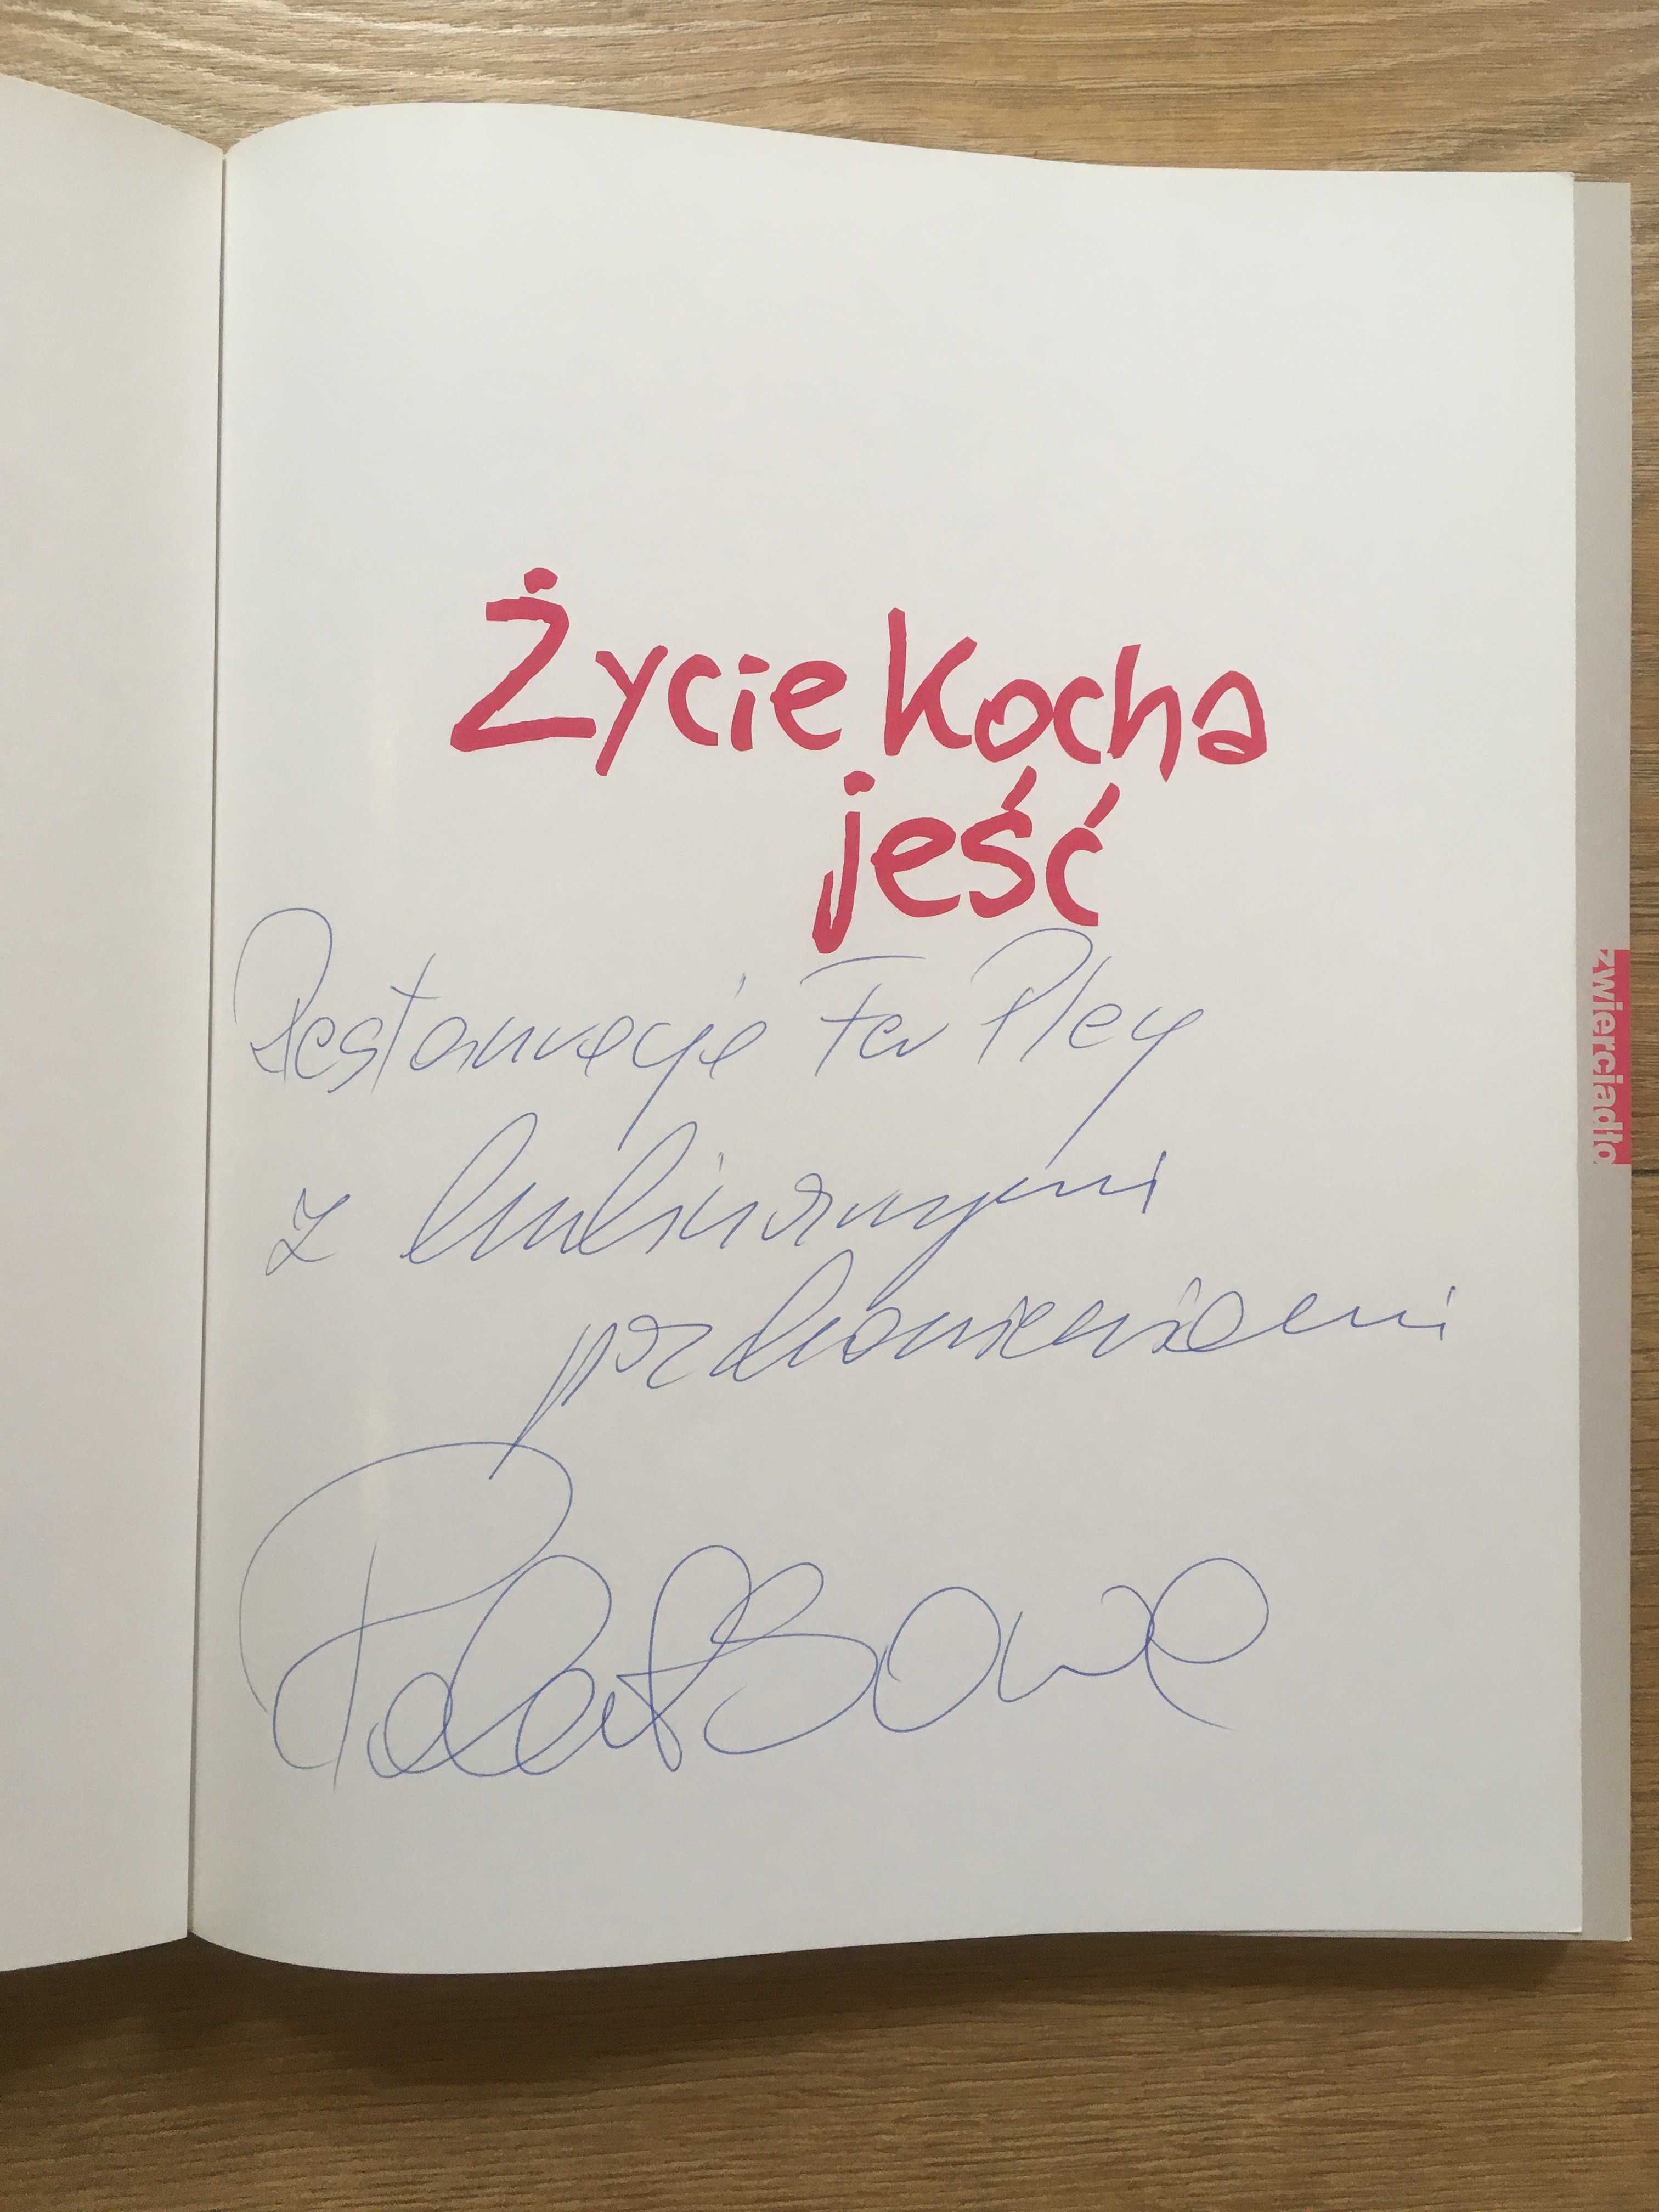 Życie kocha
jeść
Restauracja Fer Pley
z kulinarnymi
pozdrowieniami
zwierciadło